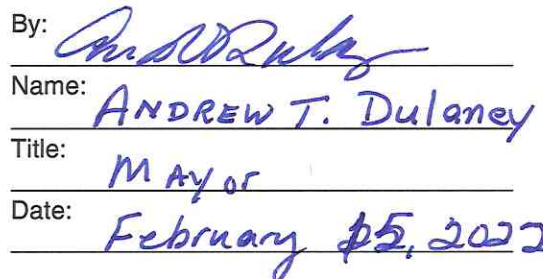 By:
Name: ANDREW T. Dulaney
Title: Mayor
Date: February 15, 2022